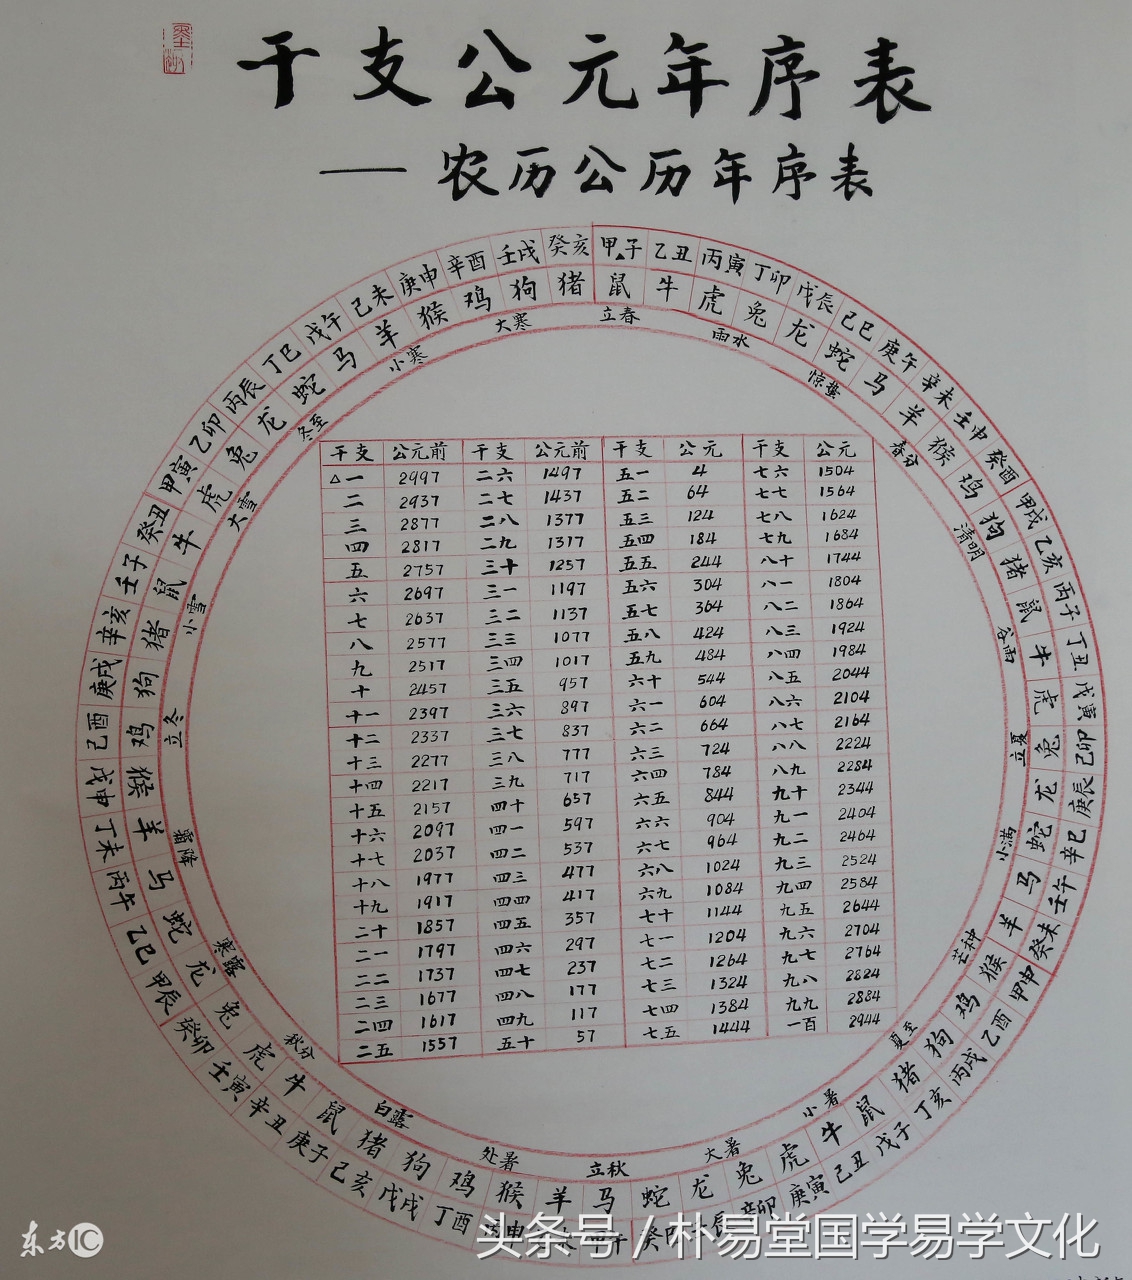 干支公元年序表
— 农历公历年序表
甲子 乙丑 丙寅 丁卯 戊辰 己巳 庚午 辛未 壬申 癸酉 甲戌 乙亥 丙子 丁丑 戊寅 己卯 庚辰 辛巳 壬午 癸未 甲申 乙酉 丙戌 丁亥 戊子 己丑 庚寅 辛卯
丁酉 戊戌 己亥 庚子 辛丑 壬寅 癸卯 甲辰 乙巳 丙午 丁未 戊申 己酉 庚戌 辛亥 壬子 癸丑 甲寅 乙卯 丙辰 丁巳 戊午 己未 庚申 辛酉 壬戌 癸亥
鼠 牛 虎 兔 龙 蛇 马 羊 猴 鸡 狗 猪 鼠 牛 虎 兔 龙 蛇 马 羊 猴 鸡 狗 猪 鼠 牛 虎 兔 龙 蛇 马 羊 猴 鸡 狗 猪 鼠 牛 虎 兔 龙 蛇 马 羊 猴 鸡 狗 猪 鼠 牛 虎 兔 龙 蛇 马 羊 猴 鸡 狗 猪
立春 雨水 惊蛰 春分 清明 谷雨 立夏 小满 芒种 夏至 小暑 大暑 立秋 处暑 白露 秋分 寒露 霜降 立冬 小雪 大雪 冬至 小寒 大寒
干支 公元前 干支 公元前 干支 公元 干支 公元
△一 2997 二六 1497 五一 4 七六 1504
二 2937 二七 1437 五二 64 七七 1564
三 2877 二八 1377 五三 124 七八 1624
四 2817 二九 1317 五四 184 七九 1684
五 2757 三十 1257 五五 244 八十 1744
六 2697 三一 1197 五六 304 八一 1804
七 2637 三二 1137 五七 364 八二 1864
八 2577 三三 1077 五八 424 八三 1924
九 2517 三四 1017 五九 484 八四 1984
十 2457 三五 957 六十 544 八五 2044
十一 2397 三六 897 六一 604 八六 2104
十二 2337 三七 837 六二 664 八七 2164
十三 2277 三八 777 六三 724 八八 2224
十四 2217 三九 717 六四 784 八九 2284
十五 2157 四十 657 六五 844 九十 2344
十六 2097 四一 597 六六 904 九一 2404
十七 2037 四二 537 六七 964 九二 2464
十八 1977 四三 477 六八 1024 九三 2524
十九 1917 四四 417 六九 1084 九四 2584
二十 1857 四五 357 七十 1144 九五 2644
二一 1797 四六 297 七一 1204 九六 2704
二二 1737 四七 237 七二 1264 九七 2764
二三 1677 四八 177 七三 1324 九八 2824
二四 1617 四九 117 七四 1384 九九 2884
二五 1557 五十 57 七五 1444 一百 2944
东方IC
头条号 / 朴易堂国学易学文化